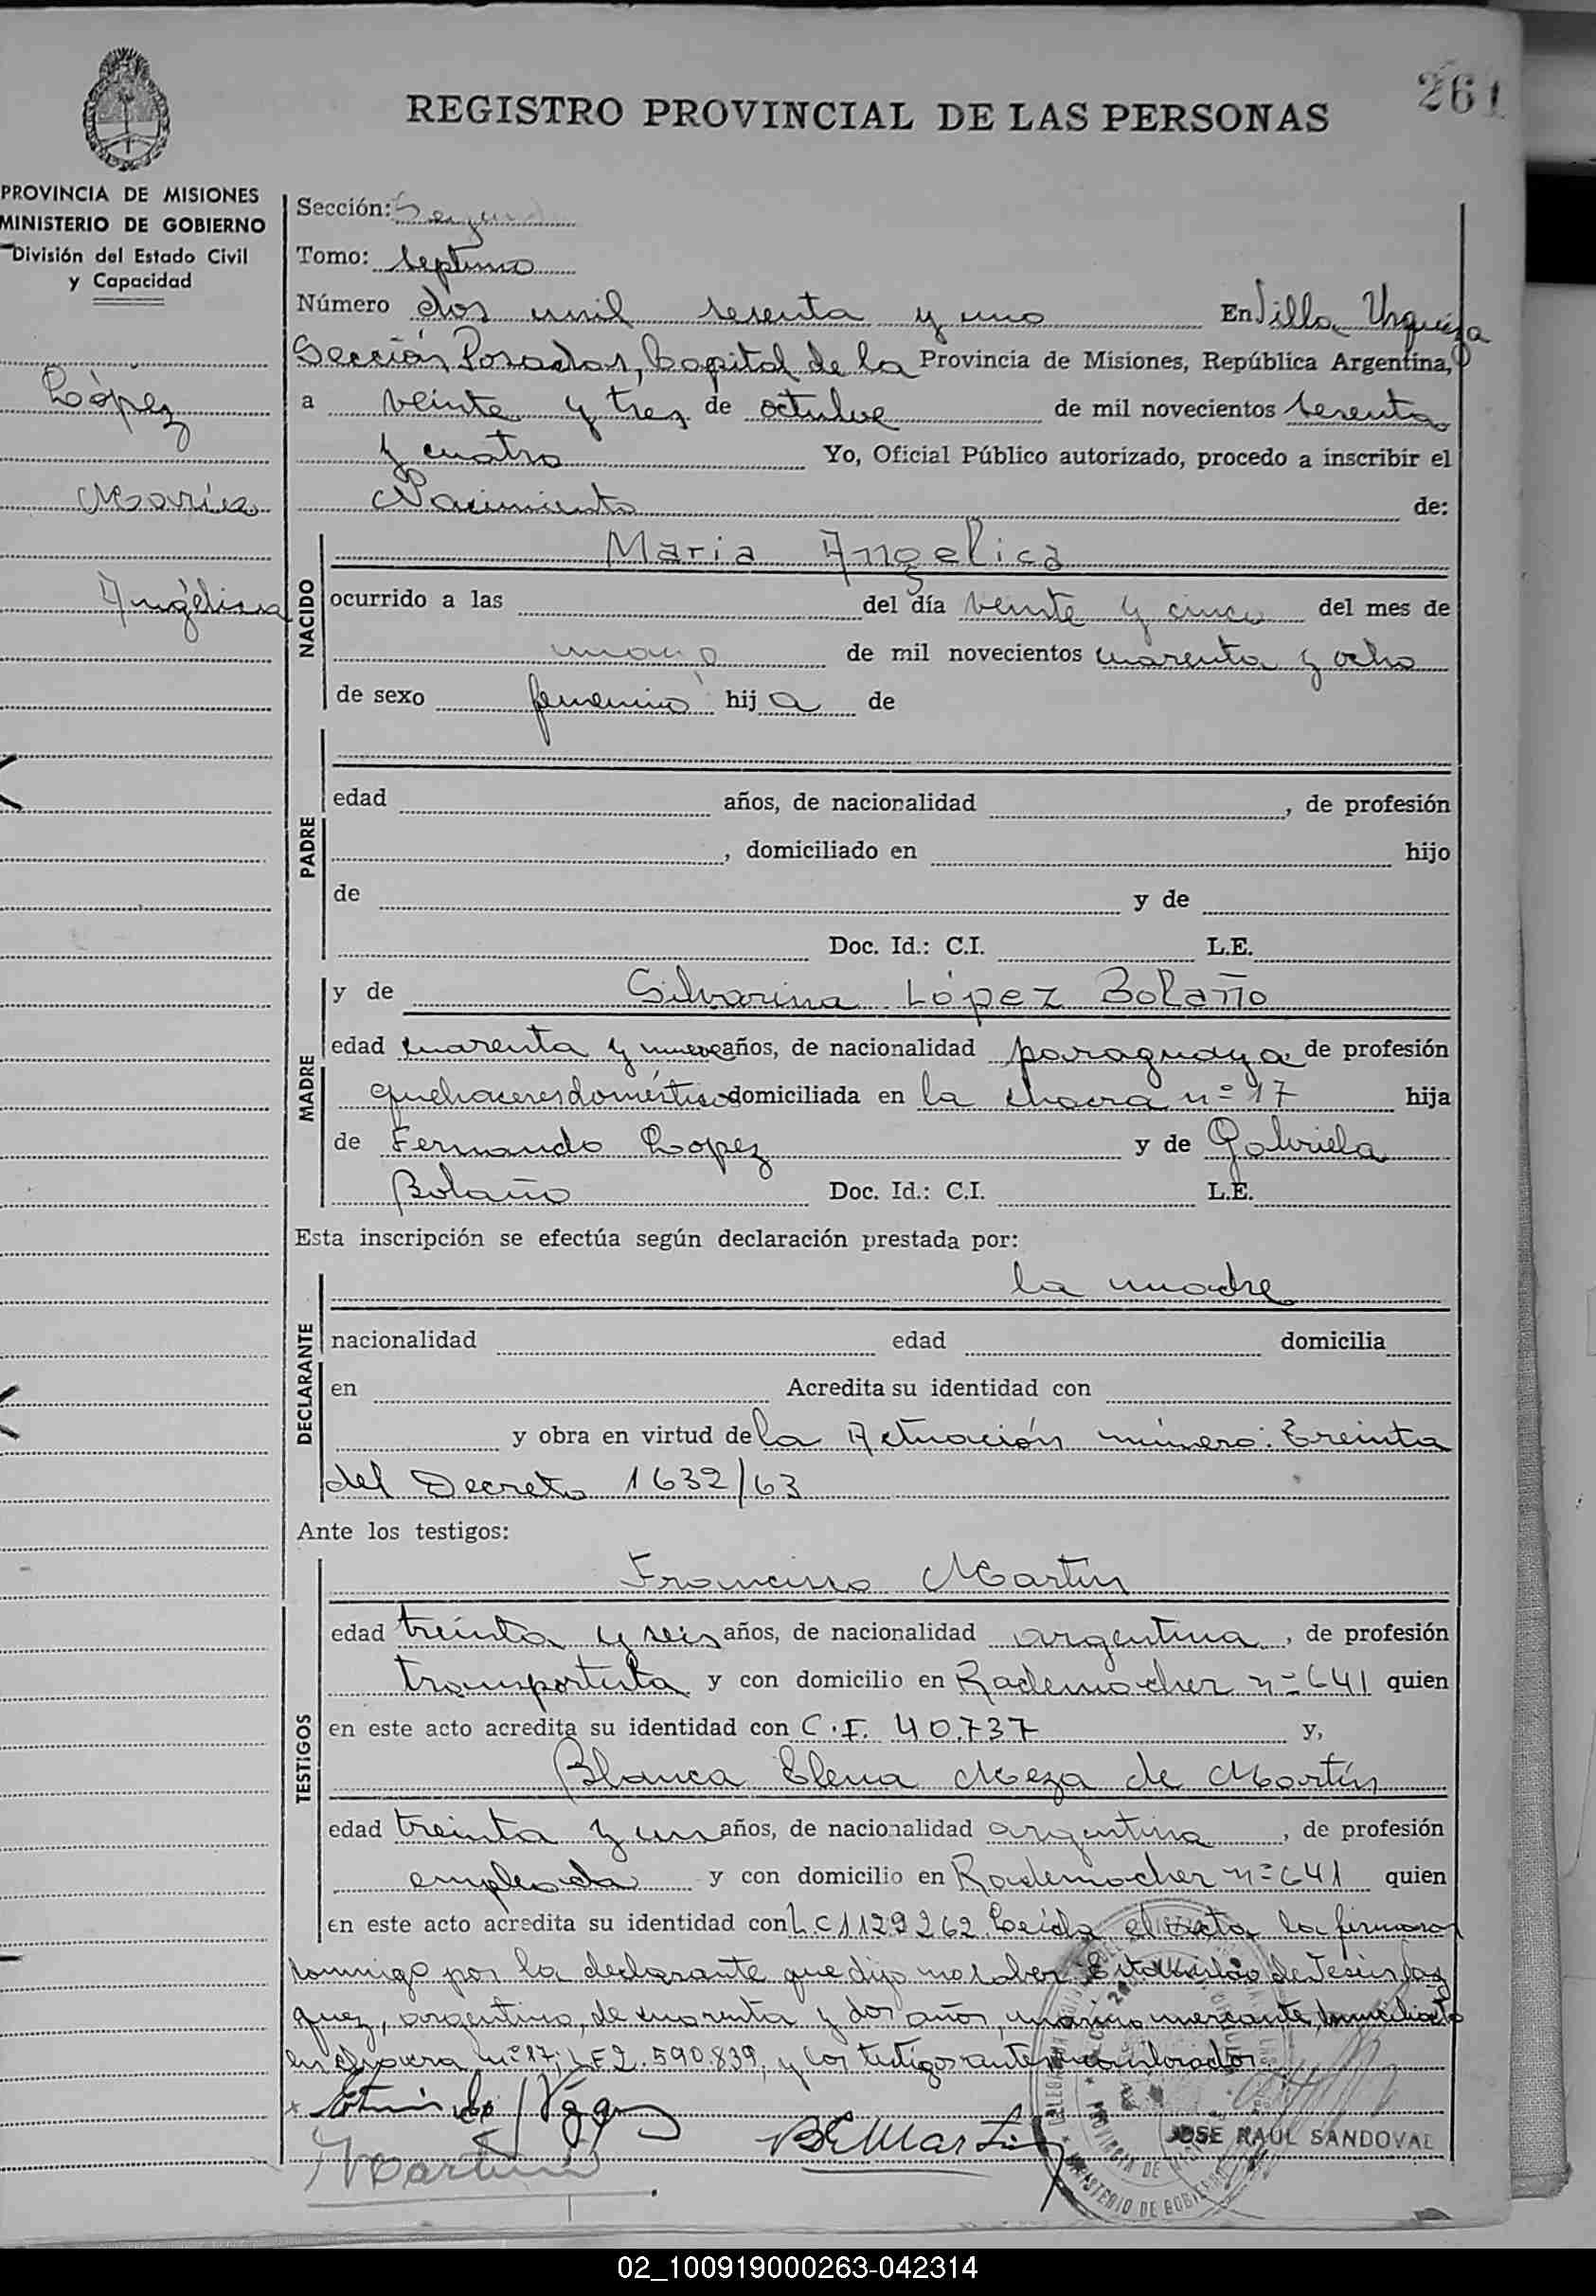 261
REGISTRO PROVINCIAL DE LAS PERSONAS
PROVINCIA DE MISIONES
MINISTERIO DE GOBIERNO
División del Estado Civil
y Capacidad
López
María
Angélica
Sección:
Tomo: septimo
Número dos mil sesenta y uno En Villa Urquiza
Sección Posadas, Capital de la Provincia de Misiones, República Argentina,
a veinte y tres de octubre de mil novecientos sesenta
y cuatro Yo, Oficial Público autorizado, procedo a inscribir el
Nacimiento de:
NACIDO
Maria Angelica
ocurrido a las del día veinte y cinco del mes de
de mil novecientos cuarenta y ocho
de sexo femenino hij a de
PADRE
edad años, de nacionalidad , de profesión
, domiciliado en hijo
de y de
Doc. Id.: C.I. L.E.
MADRE
y de Silvarina López Bolaño
edad cuarenta y nueve años, de nacionalidad paraguaya de profesión
quehaceres domésticos domiciliada en la chacra nº 17 hija
de Fernando Lopez y de Gabriela
Bolaño Doc. Id.: C.I. L.E.
Esta inscripción se efectúa según declaración prestada por:
DECLARANTE
la madre
nacionalidad edad domicilia
en Acredita su identidad con
y obra en virtud de la Actuación número: Treinta
del Decreto 1632/63
Ante los testigos:
TESTIGOS
Francisco Martín
edad treinta y seis años, de nacionalidad argentina , de profesión
transportista y con domicilio en Rademacher nº 641 quien
en este acto acredita su identidad con C.I. 40.737 y,
Blanca Elena Meza de Martín
edad treinta y un años, de nacionalidad argentina , de profesión
empleada y con domicilio en Rademacher nº 641 quien
en este acto acredita su identidad con L C 1129262. Leída el acta la firman
conmigo por la declarante que dijo no saber de Jesús Vaz
quez, argentino, de cuarenta y dos años, marino mercante, domiciliado
en chacra nº 17, L E 2.590.839, y los testigos antes nombrados
B E Martin
JOSE RAUL SANDOVAL
Martin
MINISTERIO DE GOBIERNO
02_100919000263-042314